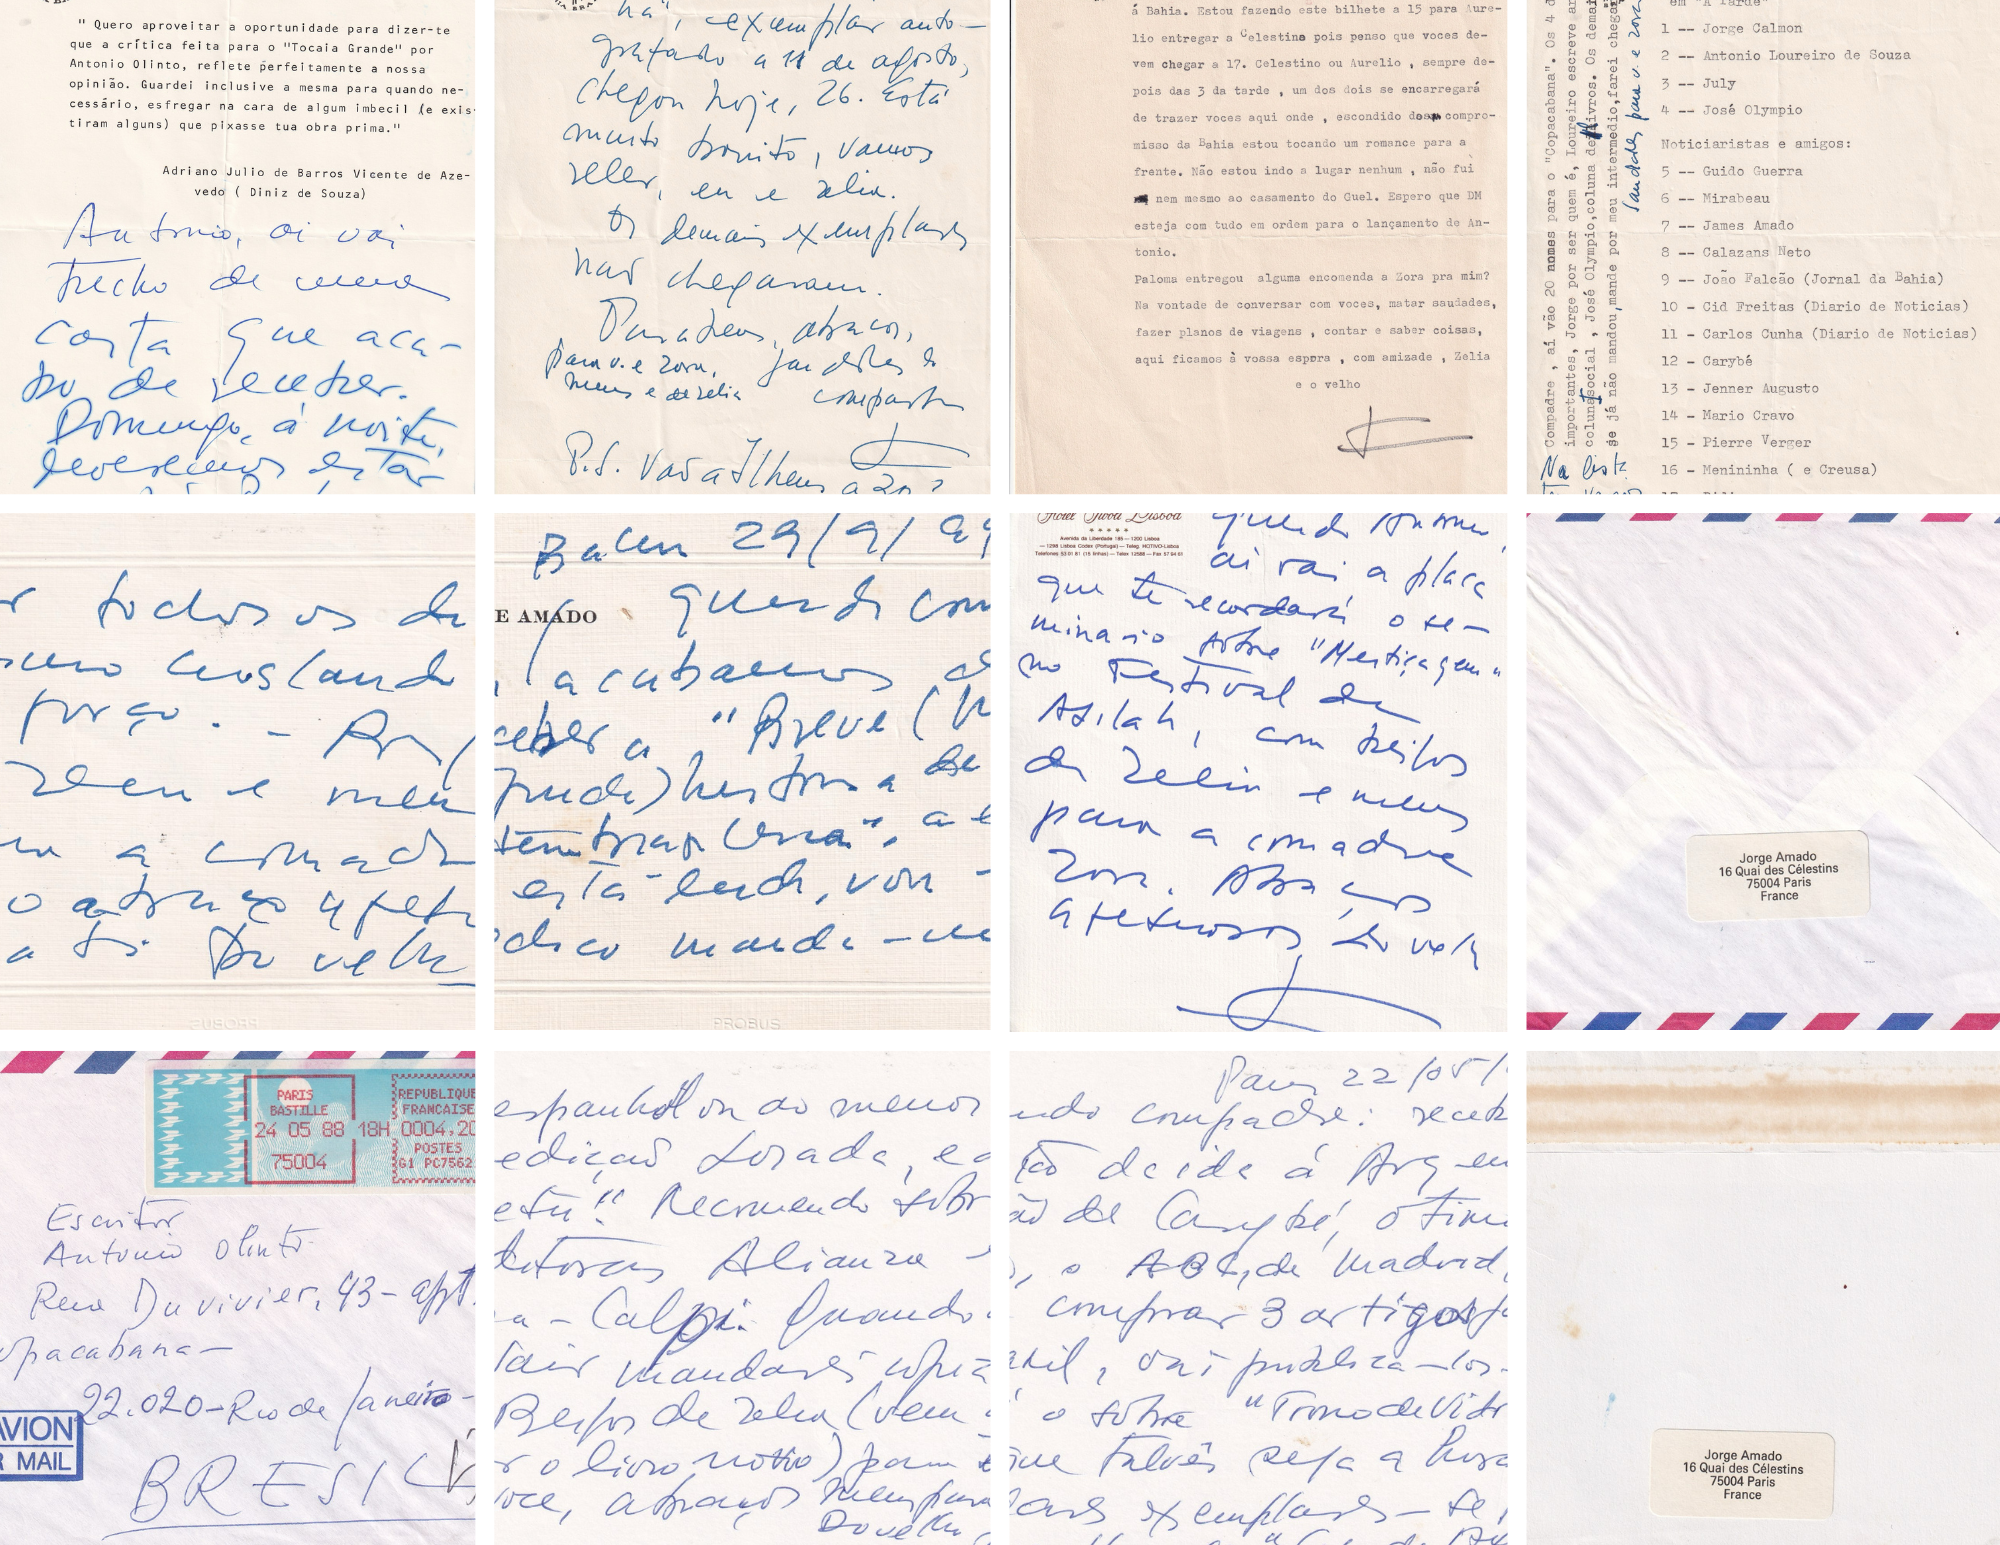 " Quero aproveitar a oportunidade para dizer-te
que a crítica feita para o "Tocaia Grande" por
Antonio Olinto, reflete perfeitamente a nossa
opinião. Guardei inclusive a mesma para quando ne-
cessário, esfregar na cara de algum imbecil (e exis-
tiram alguns) que pixasse tua obra prima."
Adriano Julio de Barros Vicente de Aze-
vedo ( Diniz de Souza)
Antonio, ai vai
trecho de uma
carta que aca-
bo de receber.
Domingo, á noite,
deveremos estar
há, exemplar auto-
grafado a 11 de agosto,
chegou hoje, 26. Está
muito bonito, vamos
reler, eu e zelia.
Os demais exemplares
não chegaram.
Parabens, abraços,
para v. e zora, saudades do
meus e de zelia compadre
P.S. Vou a Ilheus a 20
á Bahia. Estou fazendo este bilhete a 15 para Aure-
lio entregar a Celestina pois penso que voces de-
vem chegar a 17. Celestino ou Aurelio , sempre de-
pois das 3 da tarde , um dos dois se encarregará
de trazer voces aqui onde , escondido dos compro-
misso da Bahia estou tocando um romance para a
frente. Não estou indo a lugar nenhum , não fui
nem mesmo ao casamento do Guel. Espero que DM
esteja com tudo em ordem para o lançamento de An-
tonio.
Paloma entregou alguma encomenda a Zora pra mim?
Na vontade de conversar com voces, matar saudades,
fazer planos de viagens , contar e saber coisas,
aqui ficamos à vossa espera , com amizade , Zelia
e o velho
em "A Tarde"
1 -- Jorge Calmon
2 -- Antonio Loureiro de Souza
3 -- July
4 -- José Olympio
Noticiaristas e amigos:
5 -- Guido Guerra
6 -- Mirabeau
7 -- James Amado
8 -- Calazans Neto
9 -- João Falcão (Jornal da Bahia)
10 - Cid Freitas (Diario de Noticias)
11 - Carlos Cunha (Diario de Noticias)
12 - Carybé
13 - Jenner Augusto
14 - Mario Cravo
15 - Pierre Verger
16 - Menininha ( e Creusa)
Compadre , aí vão 20 nomes para o "Copacabana". Os 4 d
importantes, Jorge por ser quem é, Loureiro escreve ar
coluna social , José Olympio,coluna de livros. Os demai
se já não mandou,mande por meu intermedio,farei chega
saudades para v. e zora
Na lista
r todos os de
custando
força. –
zelia e meu
a comadre
o abraço afetu
a ti. Do velho
PROBUS
Bahia 29/9/9
E AMADO
querido com
acabamos de
ceber a "Breve (
grande) historia de
está lendo, vou
dico mando-
PROBUS
Hotel Tivoli Lisboa
Avenida da Liberdade 185 — 1200 Lisboa
— 1298 Lisboa Codex (Portugal) — Teleg. HOTIVO-Lisboa
Telefones 53 01 81 (15 linhas) — Telex 12588 — Fax 57 94 61
querido Antonio,
ai vai a placa
que te recordará o se-
minario sobre "Mestiçagem"
no Festival de
Asilah, com beijos
de Zelia e meus
para a comadre
Zora. Abraços
afetuosos, do velho
Jorge Amado
16 Quai des Célestins
75004 Paris
France
PARIS
BASTILLE
24 05 88 18H
75004
REPUBLIQUE
FRANCAISE
0004,20
POSTES
G1 PC7562
Escritor
Antonio Olinto
Rua Duvivier, 43 – apt.
opacabana –
22.020 – Rio de Janeiro –
BRESIL
AVION
R MAIL
espanhol ou ao menos
edição Losada, e a
Recomendo sobr
ditoras Alianza –
a – Calpe. Quando
sair mandarei copia
Beijos de Zelia (vem
r o livro novo) para
voce, abraços
Do velho
Paris 22/05/
ndo compadre: receb
decide á Argen
ão de Carybé, otim
, o ABC, de Madrid,
comprar 3 artigos p
asil, vai publica-los.
o sobre "Trono de Vidr
que talvês seja a
exemplares – se
Jorge Amado
16 Quai des Célestins
75004 Paris
France